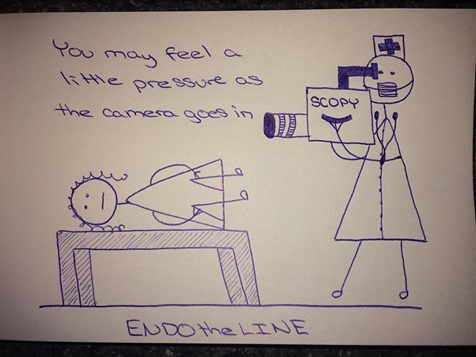 You may feel a
little pressure as
the camera goes in
SCOPY
ENDOtheLINE